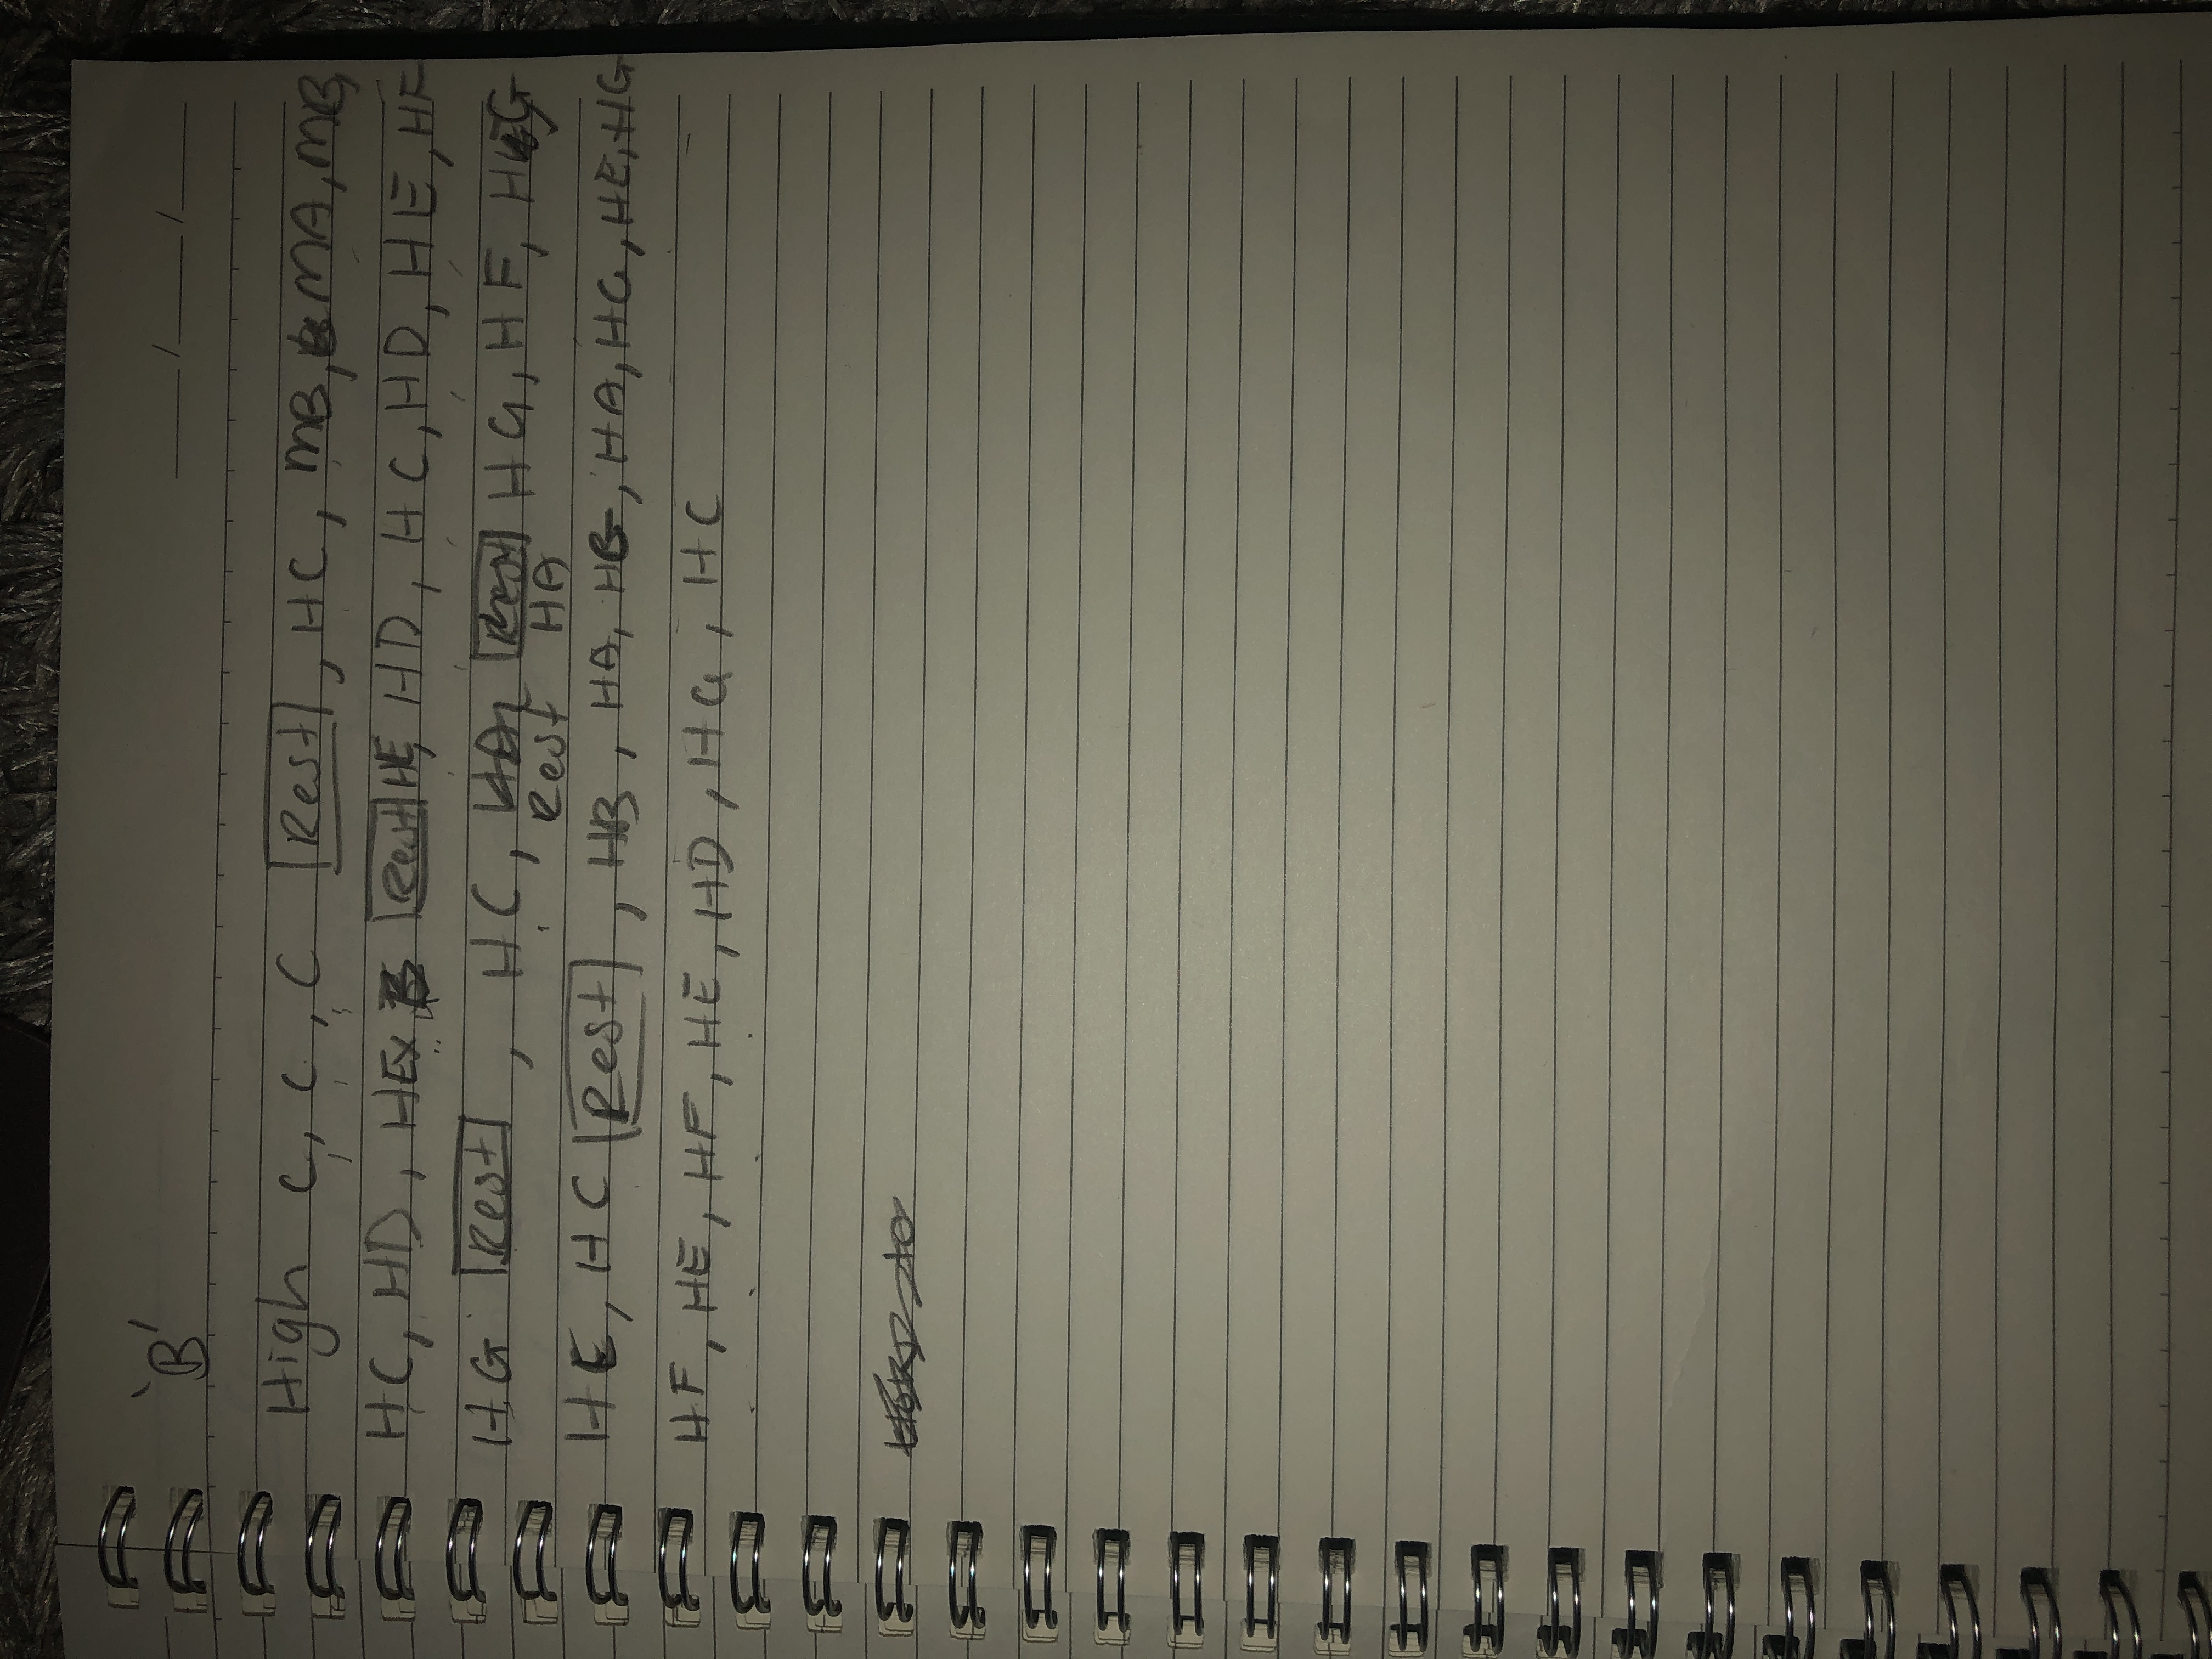 'B'
High C, C, C Rest, HC, MB, MA, MB,
HC, HD, HE Rest HE, HD, HC, HD, HE, HF
HG Rest, HC, HA, Rest HG, HF, HG,
Rest HA
HE, HC Rest, HB, HA, HG, HA, HG, HE, HG
HF, HE, HF, HE, HD, HG, HC